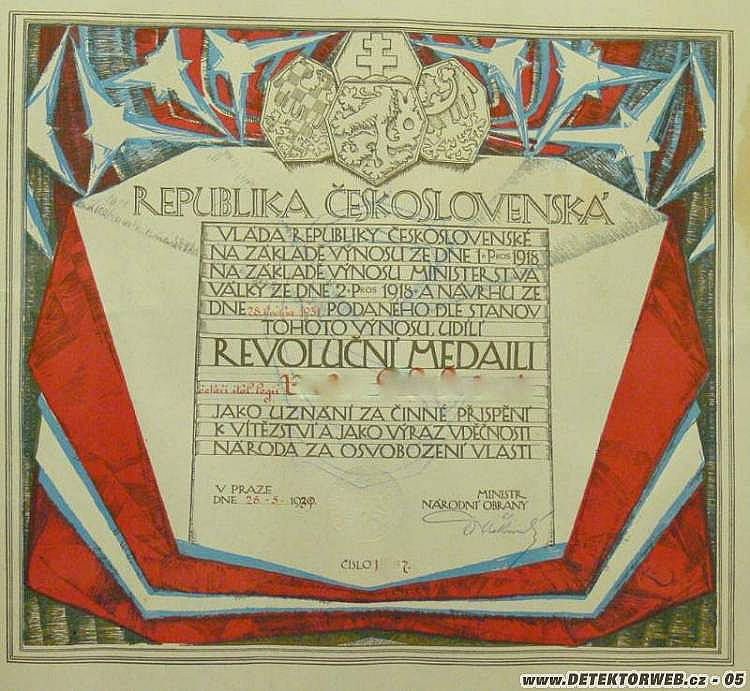 REPUBLIKA ČESKOSLOVENSKÁ
VLÁDA REPUBLIKY ČESKOSLOVENSKÉ
NA ZÁKLADĚ VÝNOSU ZE DNE 1•PROS 1918
NA ZÁKLADĚ VÝNOSU MINISTERSTVA
VÁLKY ZE DNE 2•PROS 1918•A NÁVRHU ZE
DNE 28. 1931 PODANÉHO DLE STANOV
TOHOTO VÝNOSU, UDÍLÍ
REVOLUČNÍ MEDAILI
JAKO UZNÁNÍ ZA ČINNÉ PŘISPĚNÍ
K VÍTĚZSTVÍ A JAKO VÝRAZ VDĚČNOSTI
NÁRODA ZA OSVOBOZENÍ VLASTI
V PRAZE
DNE 28.-5-
MINISTR
NÁRODNÍ OBRANY
ČÍSLO
www.DETEKTORWEB.cz - 05